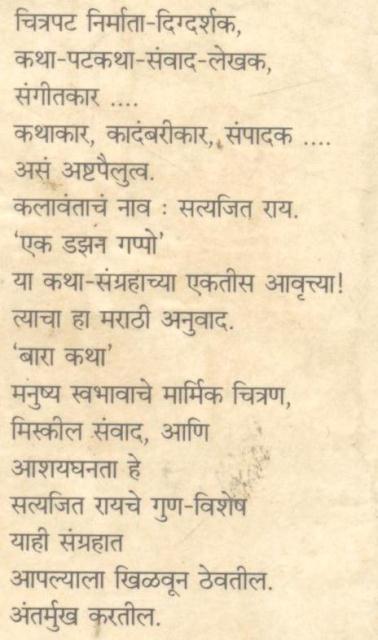 चित्रपट निर्माता-दिग्दर्शक,
कथा-पटकथा-संवाद-लेखक,
संगीतकार ....
कथाकार, कादंबरीकार, संपादक ....
असं अष्टपैलुत्व.
कलावंताचं नाव : सत्यजित राय.
'एक डझन गप्पो'
या कथा-संग्रहाच्या एकतीस आवृत्त्या!
त्याचा हा मराठी अनुवाद.
'बारा कथा'
मनुष्य स्वभावाचे मार्मिक चित्रण,
मिस्कील संवाद, आणि
आशयघनता हे
सत्यजित रायचे गुण-विशेष
याही संग्रहात
आपल्याला खिळवून ठेवतील.
अंतर्मुख करतील.